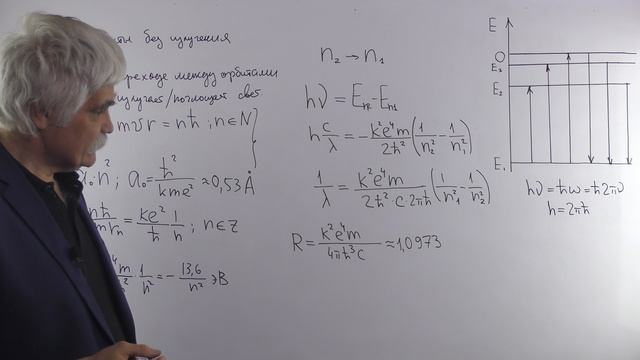 ты без излучения
реходе между орбитами
излучает/поглощает свет
mvr = nħ ; n∈N
n; a₀ = ħ²/kme² ≈ 0,53 Å
nħ/mrₙ = ke²/ħ 1/n ; n∈Z
1/n² = - 13,6/n² эВ
n₂ → n₁
hν = Eₙ₂ - Eₙ₁
h c/λ = - k²e⁴m/2ħ² (1/n₂² - 1/n₁²)
1/λ = k²e⁴m/2ħ²·c·2πħ (1/n₁² - 1/n₂²)
R = k²e⁴m/4πħ³c ≈ 1,0973
E
O
E₃
E₂
E₁
hν = ħω = ħ2πν
h = 2πħ